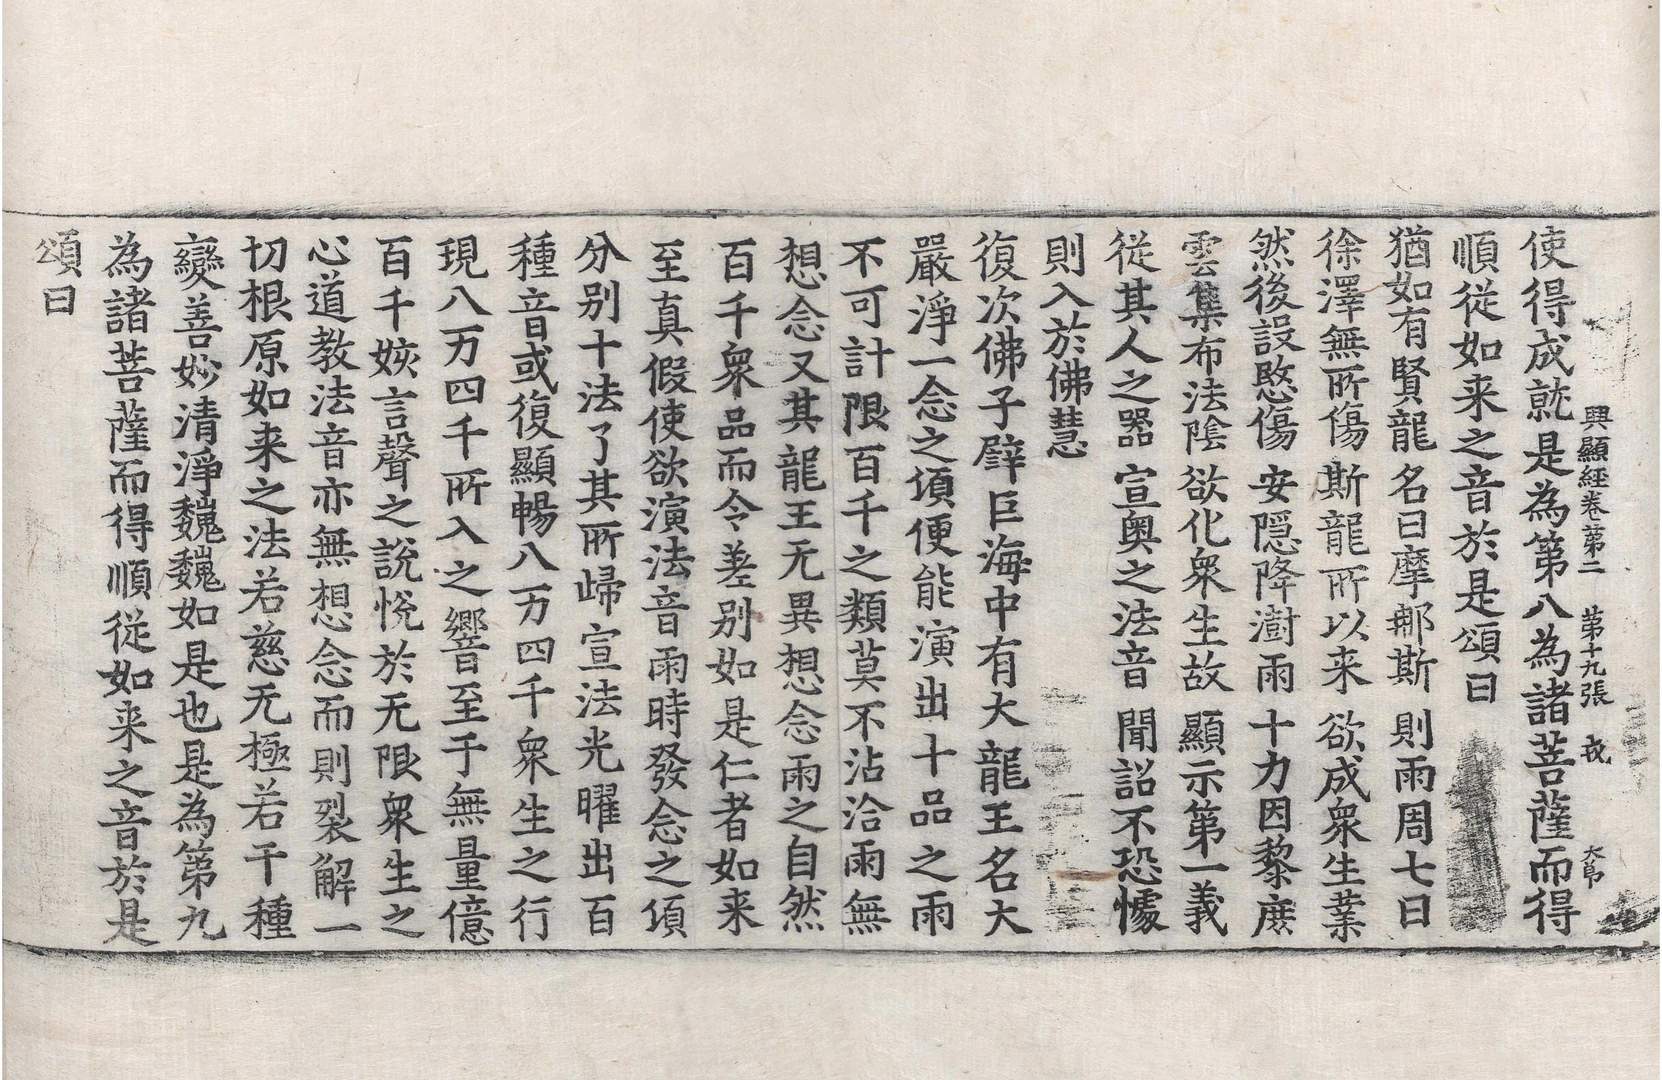 興顯經卷第二 第十九張 𢦙 大𭁵
使得成就是為第八為諸菩薩而得
順從如来之音於是頌曰
猶如有賢龍 名曰摩那斯 則雨周七日
徐澤無所傷 斯龍所以来 欲成衆生業
然後設愍傷 安隱降澍雨 十力因黎庶
雲集布法陰 欲化衆生故 顯示第一義
從其人之器 宣奥之法音 聞詔不恐懅
則入於佛慧
復次佛子辟巨海中有大龍王名大
嚴淨一念之頃便能演出十品之雨
不可計限百千之類莫不沾洽雨無
想念又其龍王无異想念雨之自然
百千衆品而令差别如是仁者如来
至真假使欲演法音雨時發念之頃
分别十法了其所歸宣法光曜出百
種音或復顯暢八万四千衆生之行
現八万四千所入之響音至于無量億
百千姟言聲之說悅於无限衆生之
心道教法音亦無想念而則裂解一
切根原如来之法若慈无極若干種
變善妙清淨巍巍如是也是為第九
為諸菩薩而得順從如来之音於是
頌曰